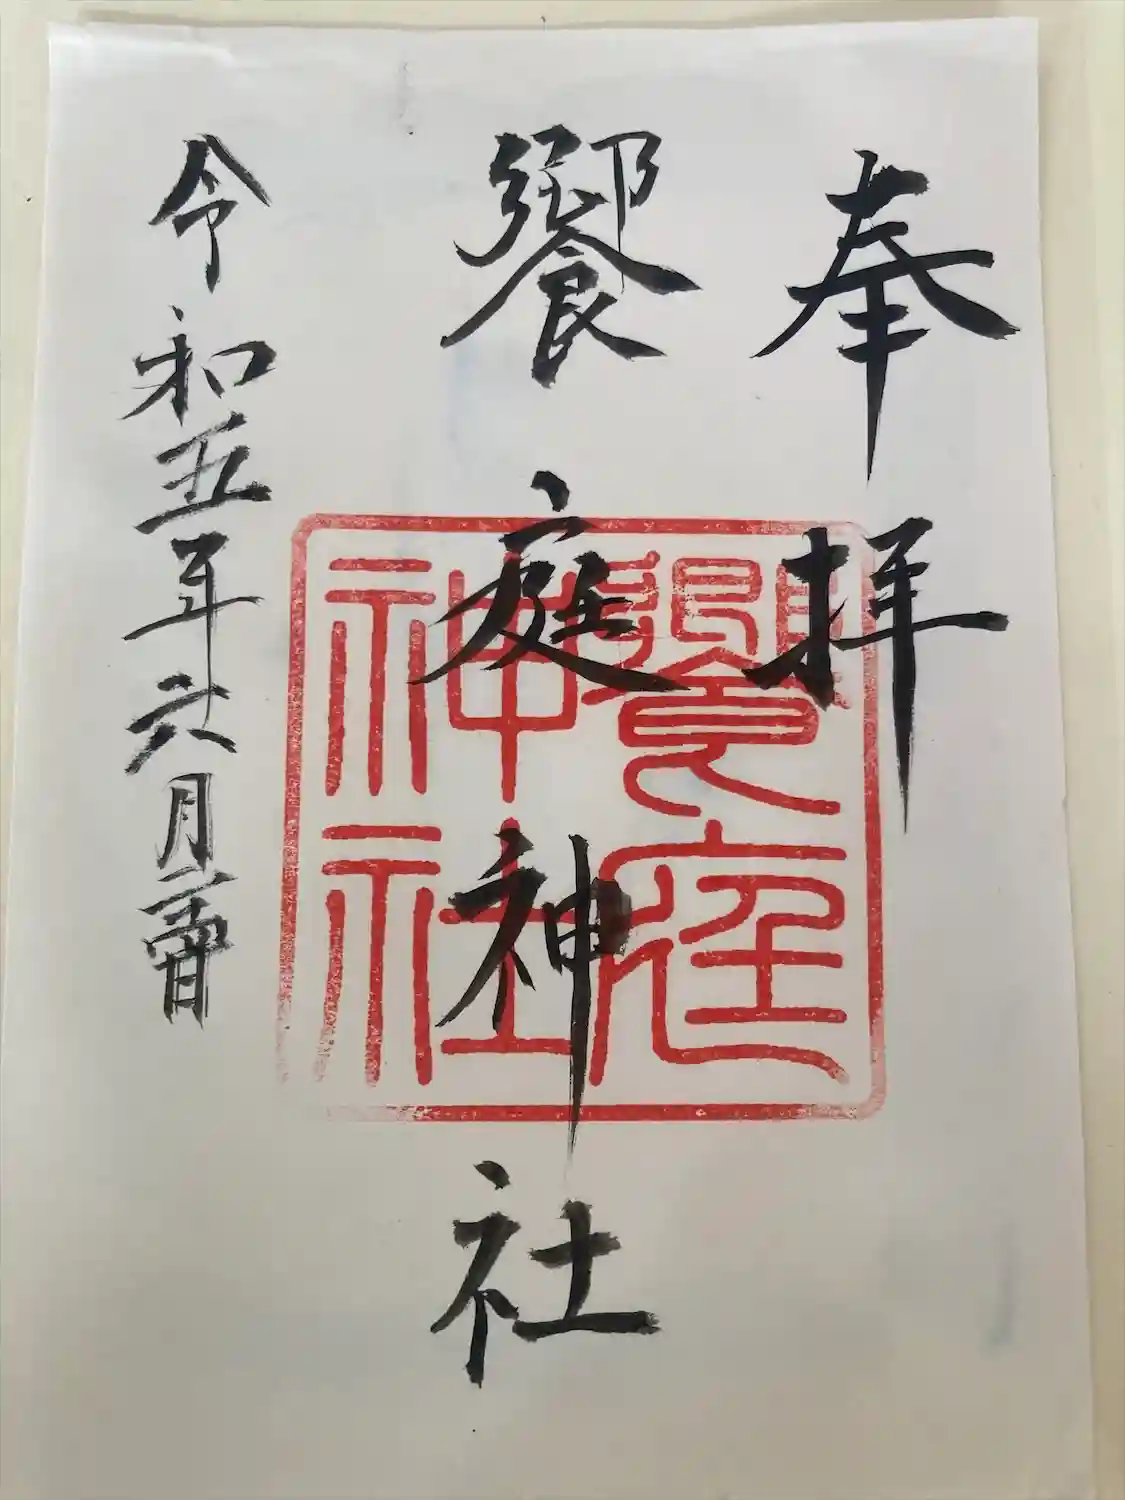 奉拝
饗庭神社
令和五年六月二十四日
饗庭
神社